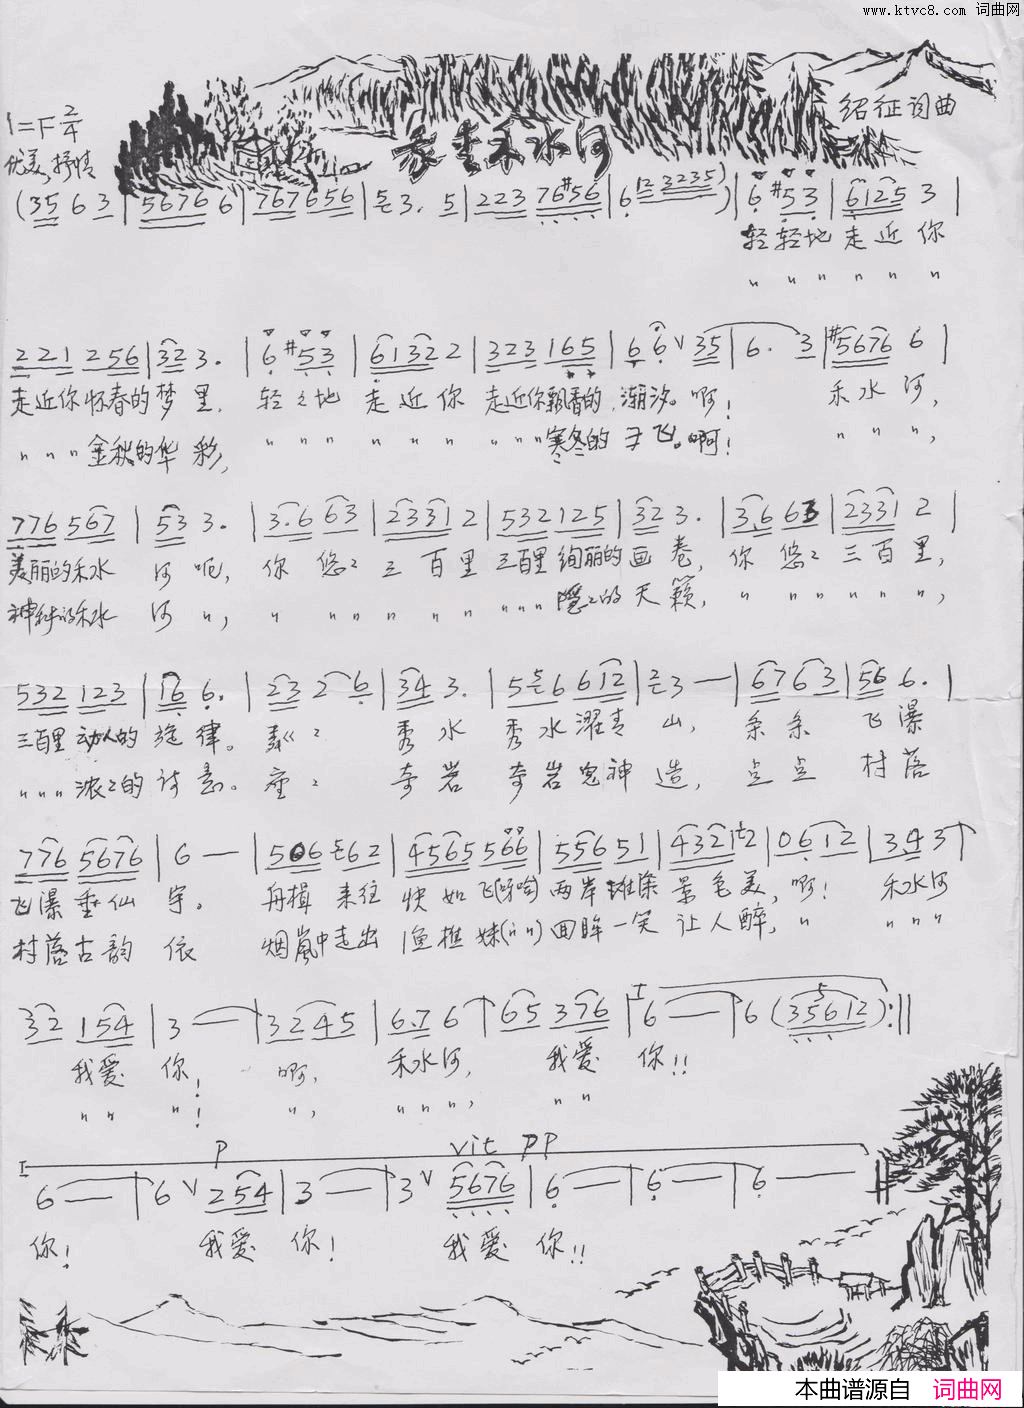 www.ktvc8.com 词曲网
绍征词曲
1=F 2/4
家乡禾水河
优美、抒情
(35 6 3 | 5676 6 | 767656 | 3. 5 | 223 76#56 | 6 12 3235) | 6 #53 | 6125 3 |
轻轻地 走近你
〃 〃 〃 〃 〃 〃
221 256 | 32 3. | 6 #53 | 6132 2 | 323 165 | 6 6 ∨ 35 | 6. 3 | #5676 6 |
走近你怀春的梦里, 轻〻地 走近你 走近你飘香的潮汐。啊! 禾水河,
〃〃〃金秋的华彩, 〃 〃 〃 〃 〃 〃 〃〃〃寒冬的 飞。啊! 〃 〃 〃,
776 567 | 53 3. | 3.6 63 | 2331 2 | 532 125 | 32 3. | 3.6 63 | 2331 2 |
美丽的禾水 河呃, 你 悠〻 三百里 三百里 绚丽的画卷, 你 悠〻 三百里,
神秘的禾水 河〃, 〃 〃〃 〃 〃 〃 〃〃〃 隐〻的天籁, 〃 〃〃〃〃〃,
532 123 | 16 6. | 23 2 6 | 34 3. | 5 6 612 | 3 — | 67 63 | 56 6. |
三百里 动人的 旋律。 秀水 秀水濯青山, 条条 飞瀑
〃〃〃 浓〻的诗意。 座〻 奇岩 奇岩鬼神造, 点点 村落
776 5676 | 6 — | 506 62 | 4565 566 | 556 51 | 432 12 | 0 612 | 3.4 3 |
飞瀑垂仙宇。 舟楫来往 快如飞(呀哈) 两岸 景色美, 啊! 禾水河
村落古韵依 烟岚中走出 渔樵妹(〃〃) 回眸一笑 让人醉, 〃 〃〃〃
32 154 | 3 — | 32 45 | 6.7 6 | 65 376 | 6 — | 6 (35612) :||
我爱 你! 啊, 禾水河, 我爱 你!!
〃〃 〃! 〃, 〃〃〃, 〃〃
P vit PP
6 — | 6 ∨ 254 | 3 — | 3 ∨ 5676 | 6 — | 6 — | 6 — ||
你! 我爱 你! 我爱 你!!
本曲谱源自 词曲网